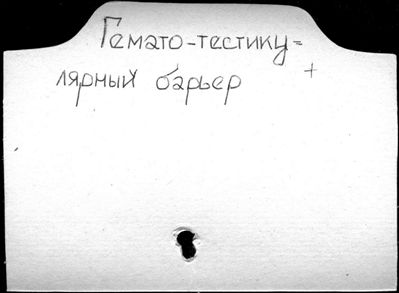 Гемато-тестику=
лярный барьер +